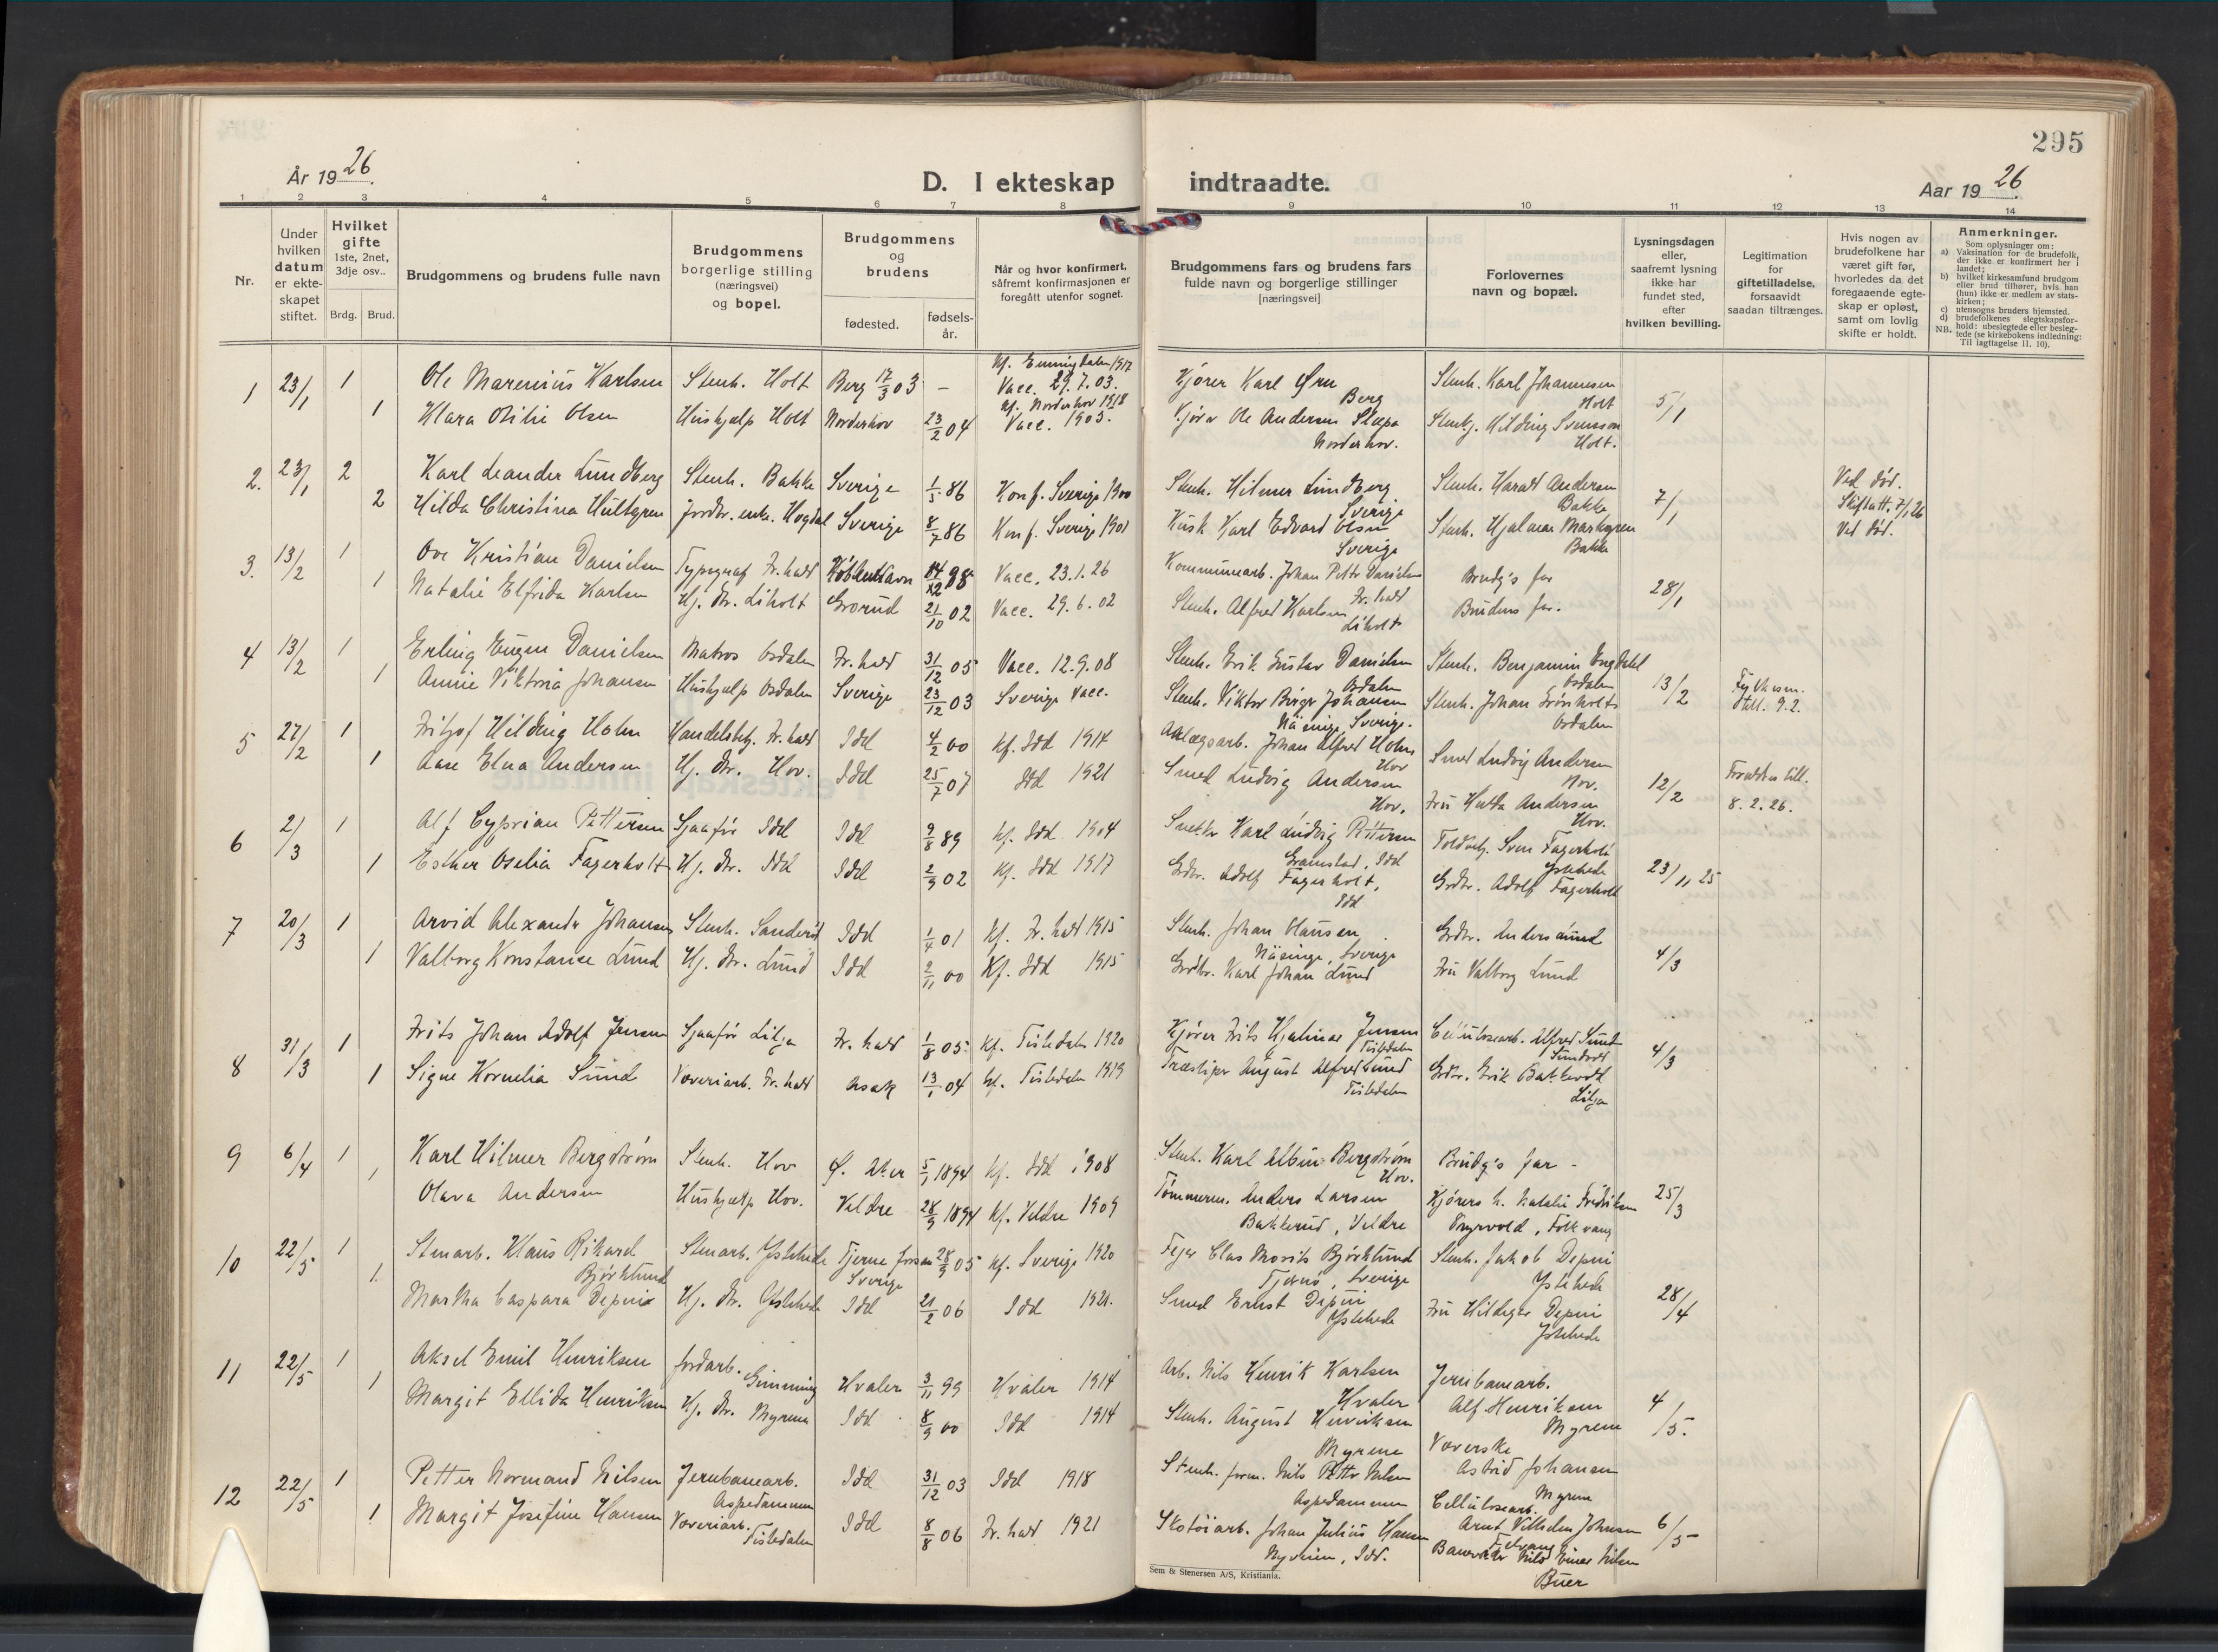 295
År 1926.
D. I ekteskap indtraadte.
Aar 1926.
1 2 3 4 5 6 7 8 9 10 11 12 13 14
Nr.
Under hvilken datum er ekteskapet stiftet.
Hvilket gifte 1ste, 2net, 3dje osv..
Brdg. Brud.
Brudgommens og brudens fulle navn
Brudgommens borgerlige stilling (næringsvei) og bopel.
Brudgommens og brudens
fødested.
fødselsår.
Når og hvor konfirmert, såfremt konfirmasjonen er foregått utenfor sognet.
Brudgommens fars og brudens fars fulde navn og borgerlige stillinger [næringsvei]
Forlovernes navn og bopæl.
Lysningsdagen eller, saafremt lysning ikke har fundet sted, efter hvilken bevilling.
Legitimation for giftetilladelse, forsaavidt saadan tiltrænges.
Hvis nogen av brudefolkene har været gift før, hvorledes da det foregaaende egteskap er opløst, samt om lovlig skifte er holdt.
Anmerkninger.
Som oplysninger om:
a) Vaksination for de brudefolk, der ikke er konfirmert her i landet;
b) hvilket kirkesamfund brudgom eller brud tilhører, hvis han (hun) ikke er medlem av statskirken;
c) utensogns bruders hjemsted.
d) brudefolkenes slegtskapsforhold: ubeslegtede eller beslegtede (se kirkebokens indledning: Til iagttagelse II. 10).
NB.
1 23/1 1 Ole Marenius Karlsen Stenh. Holt Berg 17/3 03 – Kf. Enningdalen 1917 Vacc. 29.7.03. Kjører Karl Ørn Berg Stenh. Karl Johannesen Holt 5/1
1 Klara Otilie Olsen Hushjælp Holt Norderhov 23/2 04 Kf. Norderhov 1918 Vacc. 1905. Kjører Ole Andersen Norderhov. Hilding Svensson Holt.
2. 23/1 2 Karl Leander Lundberg Stenh. Bakke Sverige 1/5 86 Konf. Sverige 1900 Stenh. Hilmer Lundberg Sverige Stenh. Harald Andersen Bakke 7/1 Ved død. Skifteatt. 7/1 26
2 Hilda Christina Hultgren Jordbr. enke. Hogdal Sverige 8/7 86 Konf. Sverige 1901 Kusk Karl Edvard Olsen Sverige Stenh. Hjalmar Markgren Bakke Ved død.
3. 13/2 1 Ove Kristian Danielsen Typograf Fr.hald København 14/12 98 Vacc. 23.1.26 Kommunearb. Johan Petter Danielsen Fr. hald Brudg's far 28/1
1 Natalie Elfrida Karlsen Hj. dtr. Liholt Grorud 21/10 02 Vacc. 29.6.02 Stenh. Alfred Karlsen Liholt Brudens far.
4 13/2 1 Erling Eugen Danielsen Matros Osdalen Fr. hald 31/12 05 Vacc. 12.9.08 Stenh. Erik Gustav Danielsen Osdalen Stenh. Benjamin Engdahl Osdalen 13/2 Fylkesm. till. 9.2.
1 Annie Viktoria Johansen Hushjælp Osdalen Sverige 23/12 03 Sverige Vacc. Stenh. Viktor Birger Johansen Näsinge, Sverige. Stenh. Johan Grönholt Osdalen
5 27/2 1 Fritjof Hilding Holm Handelsbetj. Fr. hald Idd 4/2 00 Kf. Idd 1914 Anlægsarb. Johan Alfred Holm Hov Smed Ludvig Andersen Hov. 12/2 Forældres till. 8.2.26.
1 Aase Elna Andersen Hj. dtr. Hov. Idd 25/7 07 Idd 1921 Smed Ludvig Andersen Hov. Fru Hulda Andersen Hov.
6 2/3 1 Alf Cyprian Pettersen Sjaafør Idd Idd 9/8 89 Kf. Idd 1904 Snekker Karl Ludvig Pettersen Grimstad, Idd Toldbetj. Sven Fagerholt Ystehede 23/11 25
1 Esther Oselia Fagerholt Hj. dtr. Idd Idd 2/9 02 Kf. Idd 1917 Grdbr. Adolf Fagerholt, Idd Grdbr. Adolf Fagerholt
7 20/3 1 Arvid Alexander Johansen Stenh. Sanderöd Idd 1/4 01 Kf. Fr. hald 1915 Stenh. Johan Hansen Näsinge, Sverige Grdbr. Anders Lund 4/3
1 Valborg Konstanse Lund Hj. dtr. Lund Idd 2/11 00 Kf. Idd 1915 Grdbr. Karl Johan Lund Fru Valborg Lund
8 31/3 1 Frits Johan Adolf Jensen Sjaafør Lilja Fr. hald 1/8 05 Kf. Tistedalen 1920 Kjører Frits Hjalmar Jensen Tistedalen Cellulosearb. Alfred Sund 4/3
1 Signe Kornelia Sund Væveriarb. Fr. hald Asak 13/1 04 Kf. Tistedalen 1919 Træsliper August Alfred Sund Tistedalen Grdbr. Erik Lilja
9 6/4 1 Karl Hilmer Bergström Stenh. Hov Ø. Aker 5/1 1894 Kf. Idd 1908 Stenh. Karl Albin Bergström Hov. Brudg's far - 25/3
1 Olava Andersen Hushjælp Hov. Veldre 28/9 1894 Kf. Veldre 1909 Tømmerm. Anders Larsen Bakkerud, Veldre Kjørers h. Natalie Fredriksen, Folkvang
10 22/5 1 Stenarb. Klaus Rikard Björklund Stenarb. Ystehede Sverige 28/9 05 Kf. Sverige 1920 Fejer Clas Morits Björklund Tjernö, Sverige Stenh. Jakob Depui Ystehede 28/4
1 Martha Caspara Depui Hj. dtr. Ystehede Idd 21/2 06 Idd 1921. Smed Ernst Depui Ystehede Fru Hildegar Depui Ystehede
11 22/5 1 Aksel Emil Henriksen Jordarb. Gimming Hvaler 3/11 99 Hvaler 1914 Arb. Nils Henrik Karlsen Hvaler Jernbanearb. Alf Henriksen Myrene 4/5.
1 Margit Ellida Henriksen Hj. dtr. Myrene Idd 8/9 00 Idd 1914 Stenh. August Henriksen Myrene Væverske Astrid Johansen Myrene
12 22/5 1 Petter Normand Nilsen Jernbanearb. Aspedammen Idd 31/12 03 Idd 1918 Stenh. form. Nils Petter Nilsen Aspedammen Cellulosearb. Arnt Vilhelm Johnsen 6/5
1 Margit Josefine Hansen Væveriarb. Tistedalen Idd 8/8 06 Fr. hald 1921 Skotöiarb. Johan Julius Hansen Nyveien, Idd. Banevokter Nils Einar Nilsen Buer
Sem & Stenersen A/S, Kristiania.